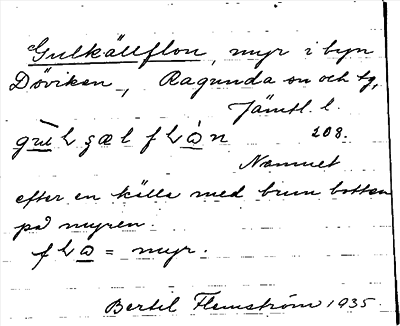 Gulkällflon, myr i byn
Döviken, Ragunda sn och tg,
Jämtl. l.
208.
Namnet
efter en källa med brun botten
på myren.
= myr.
Bertil Flemström 1935.